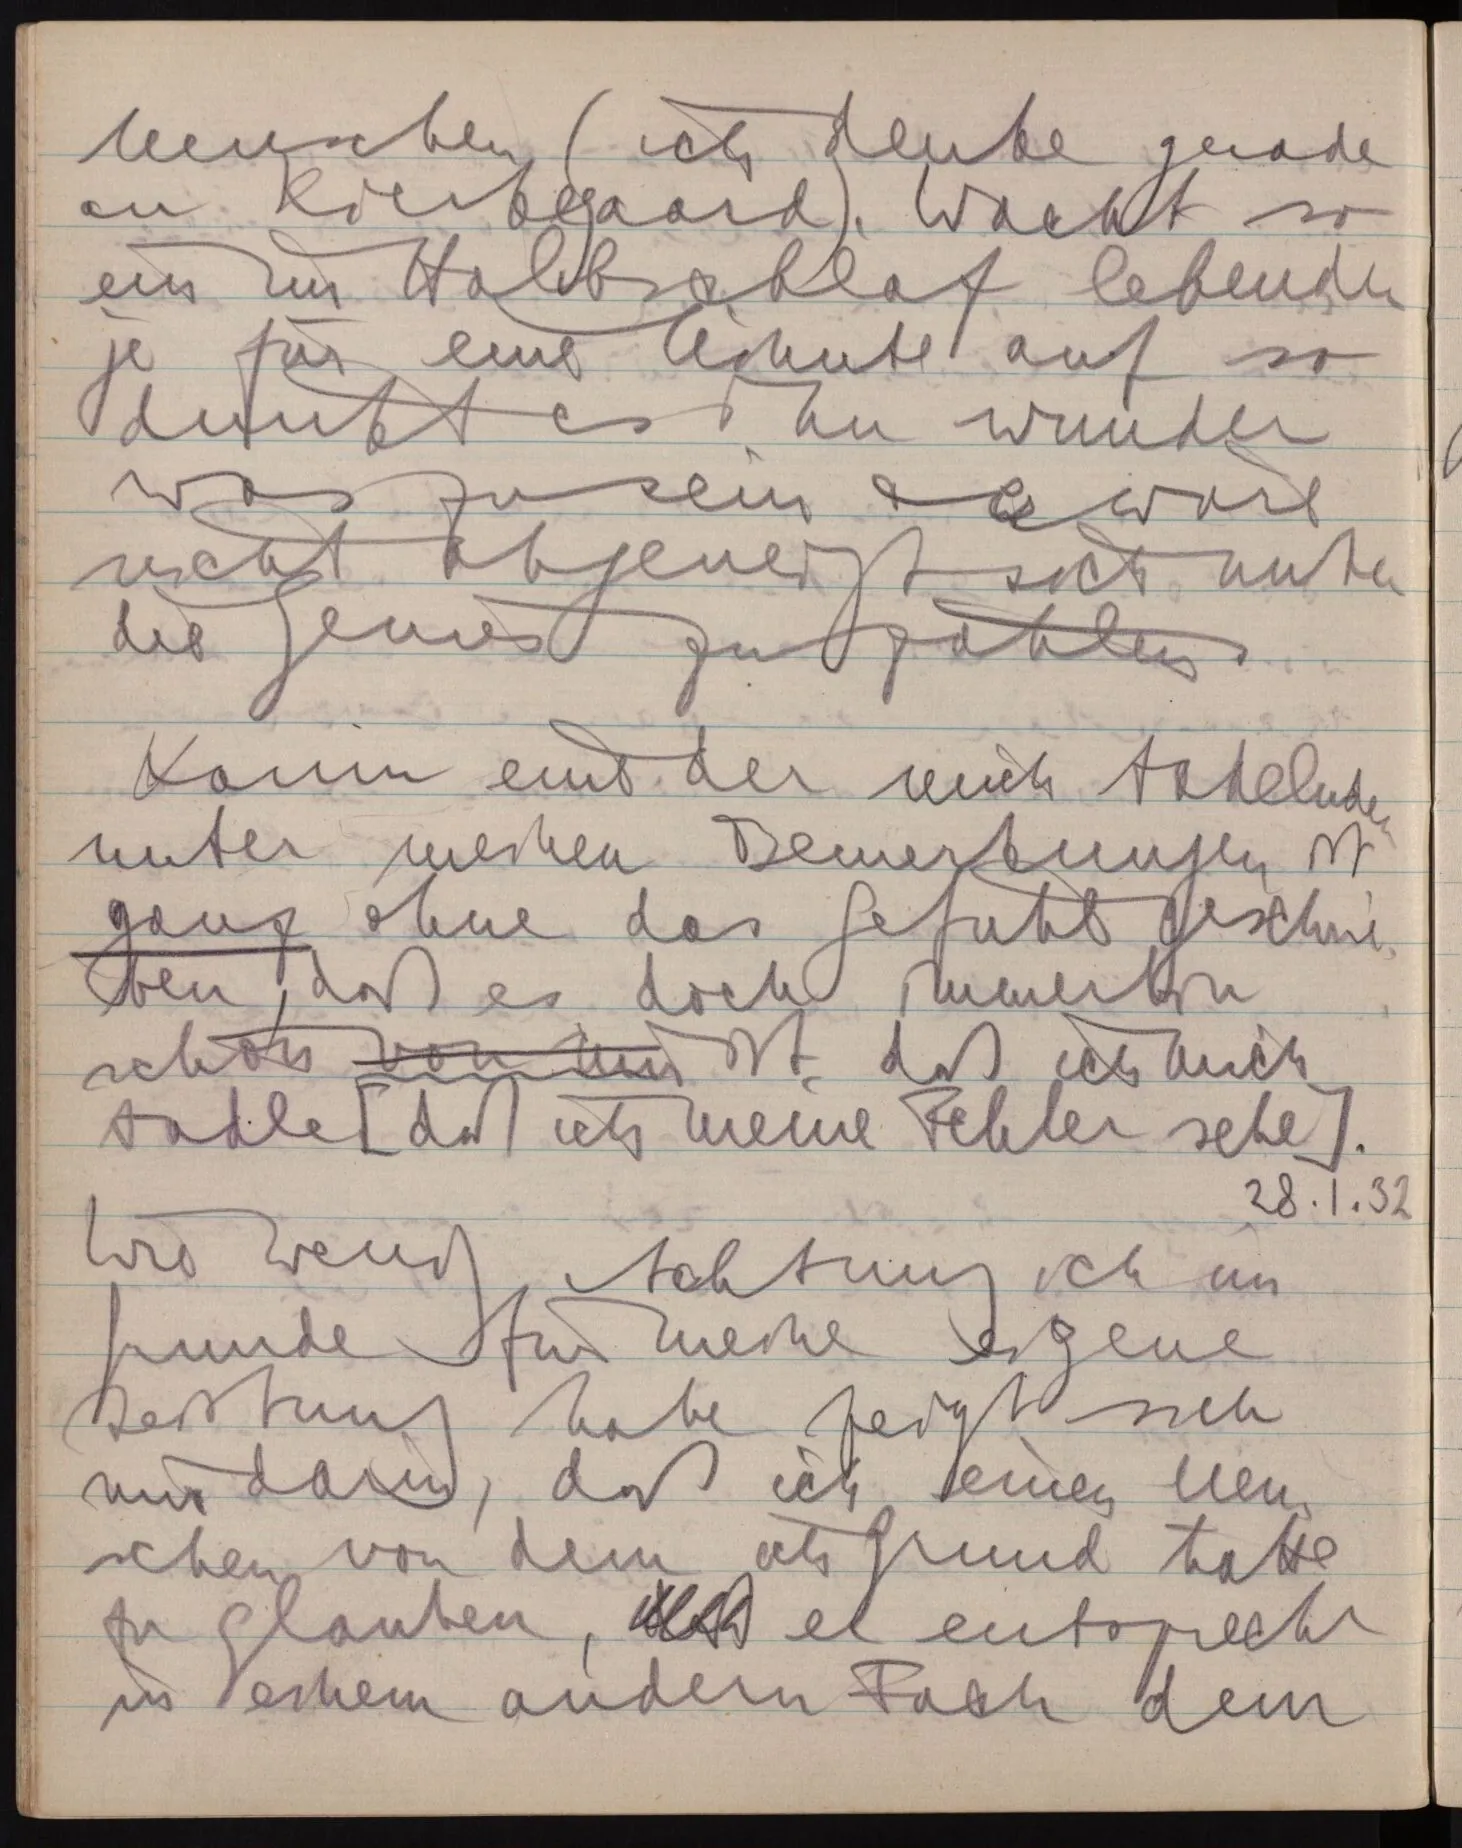 Menschen (ich denke gerade
an Kierkegaard). Wacht so
ein im Halbschlaf lebender
je für eine Minute auf so
dünkt es ihn wunder
was zu sein & er wäre
nicht abgeneigt sich unter
die Genies zu zählen.
Kaum eine der mich tadelnden
unter meinen Bemerkungen ist
ganz ohne das Gefühl geschrie-
ben, daß es doch immerhin
schön von mir ist, daß ich mich
tadle [daß ich meine Fehler sehe].
28.1.32
Wie wenig Achtung ich im
Grunde für meine eigene
Leistung habe zeigt sich
mir darin, daß ich einen Men-
schen von dem ich Grund hätte
zu glauben, er entspreche
in einem andern Fach dem